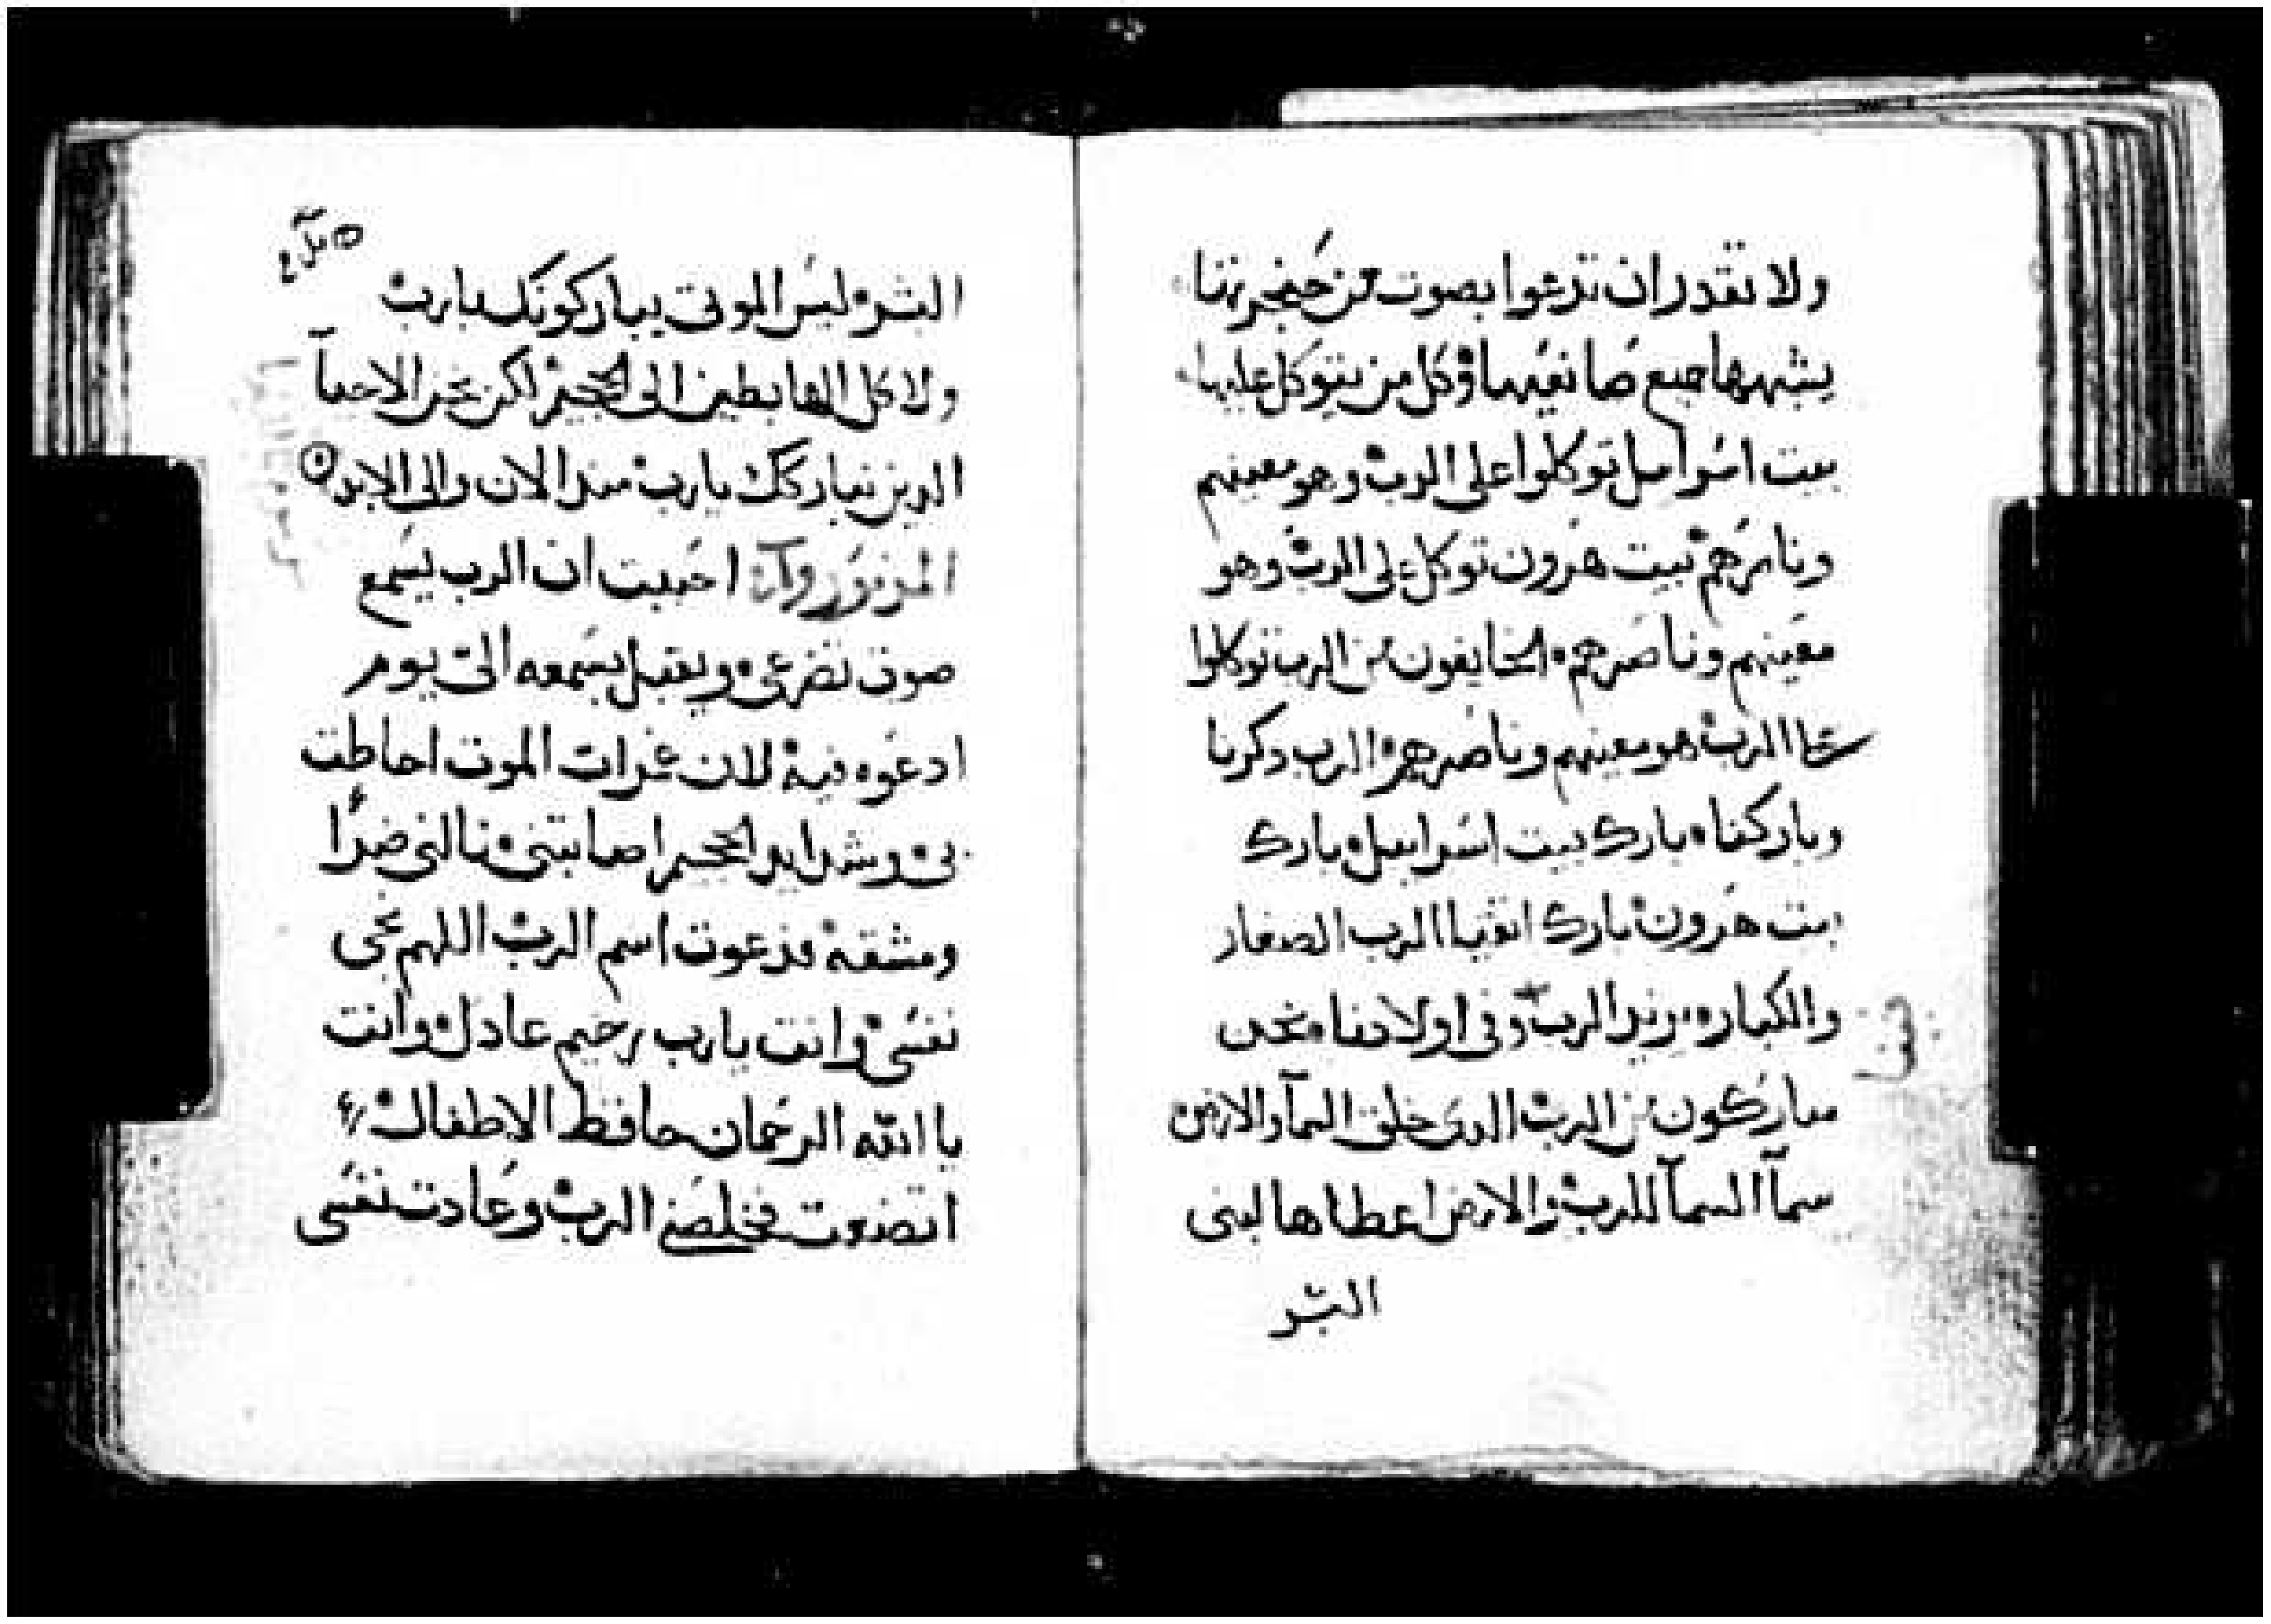 ولا تقدر ان تدعوا بصوت من حنجرتها
يشبهها جميع صانعيها وكل من يتوكل عليها
بيت اسراييل توكلوا على الرب وهو معينهم
وناصرهم بيت هرون توكل على الرب وهو
معينهم وناصرهم الخايفون من الرب توكلوا
على الرب هو معينهم وناصرهم الرب ذكرنا
وباركنا بارك بيت اسراييل بارك
بيت هرون بارك اتقيا الرب الصغار
والكبار يزيد الرب وفي اولادنا نحن
مباركون من الرب الذي خلق السمآ والارض
سمآ السمآ للرب والارض اعطاها لبني
البشر
البشر ليس الموتى يباركونك يا رب
ولا كل الهابطين الى الجحيم لكن نحن الاحيآ
الذين نباركك يا رب منذ الان والى الابد
المزمور احببت ان الرب يسمع
صوت تضرعى ويقبل بسمعه الى يوم
ادعوه فيه لان غمرات الموت احاطت
بى وشدايد الجحيم اصابتنى نالنى ضرًا
ومشقه فدعوت اسم الرب اللهم نجى
نفسى وانت يا رب رحيم عادل وانت
يا الله الرحمان حافظ الاطفال
اتضعت فخلصنى الرب وعادت نفسى